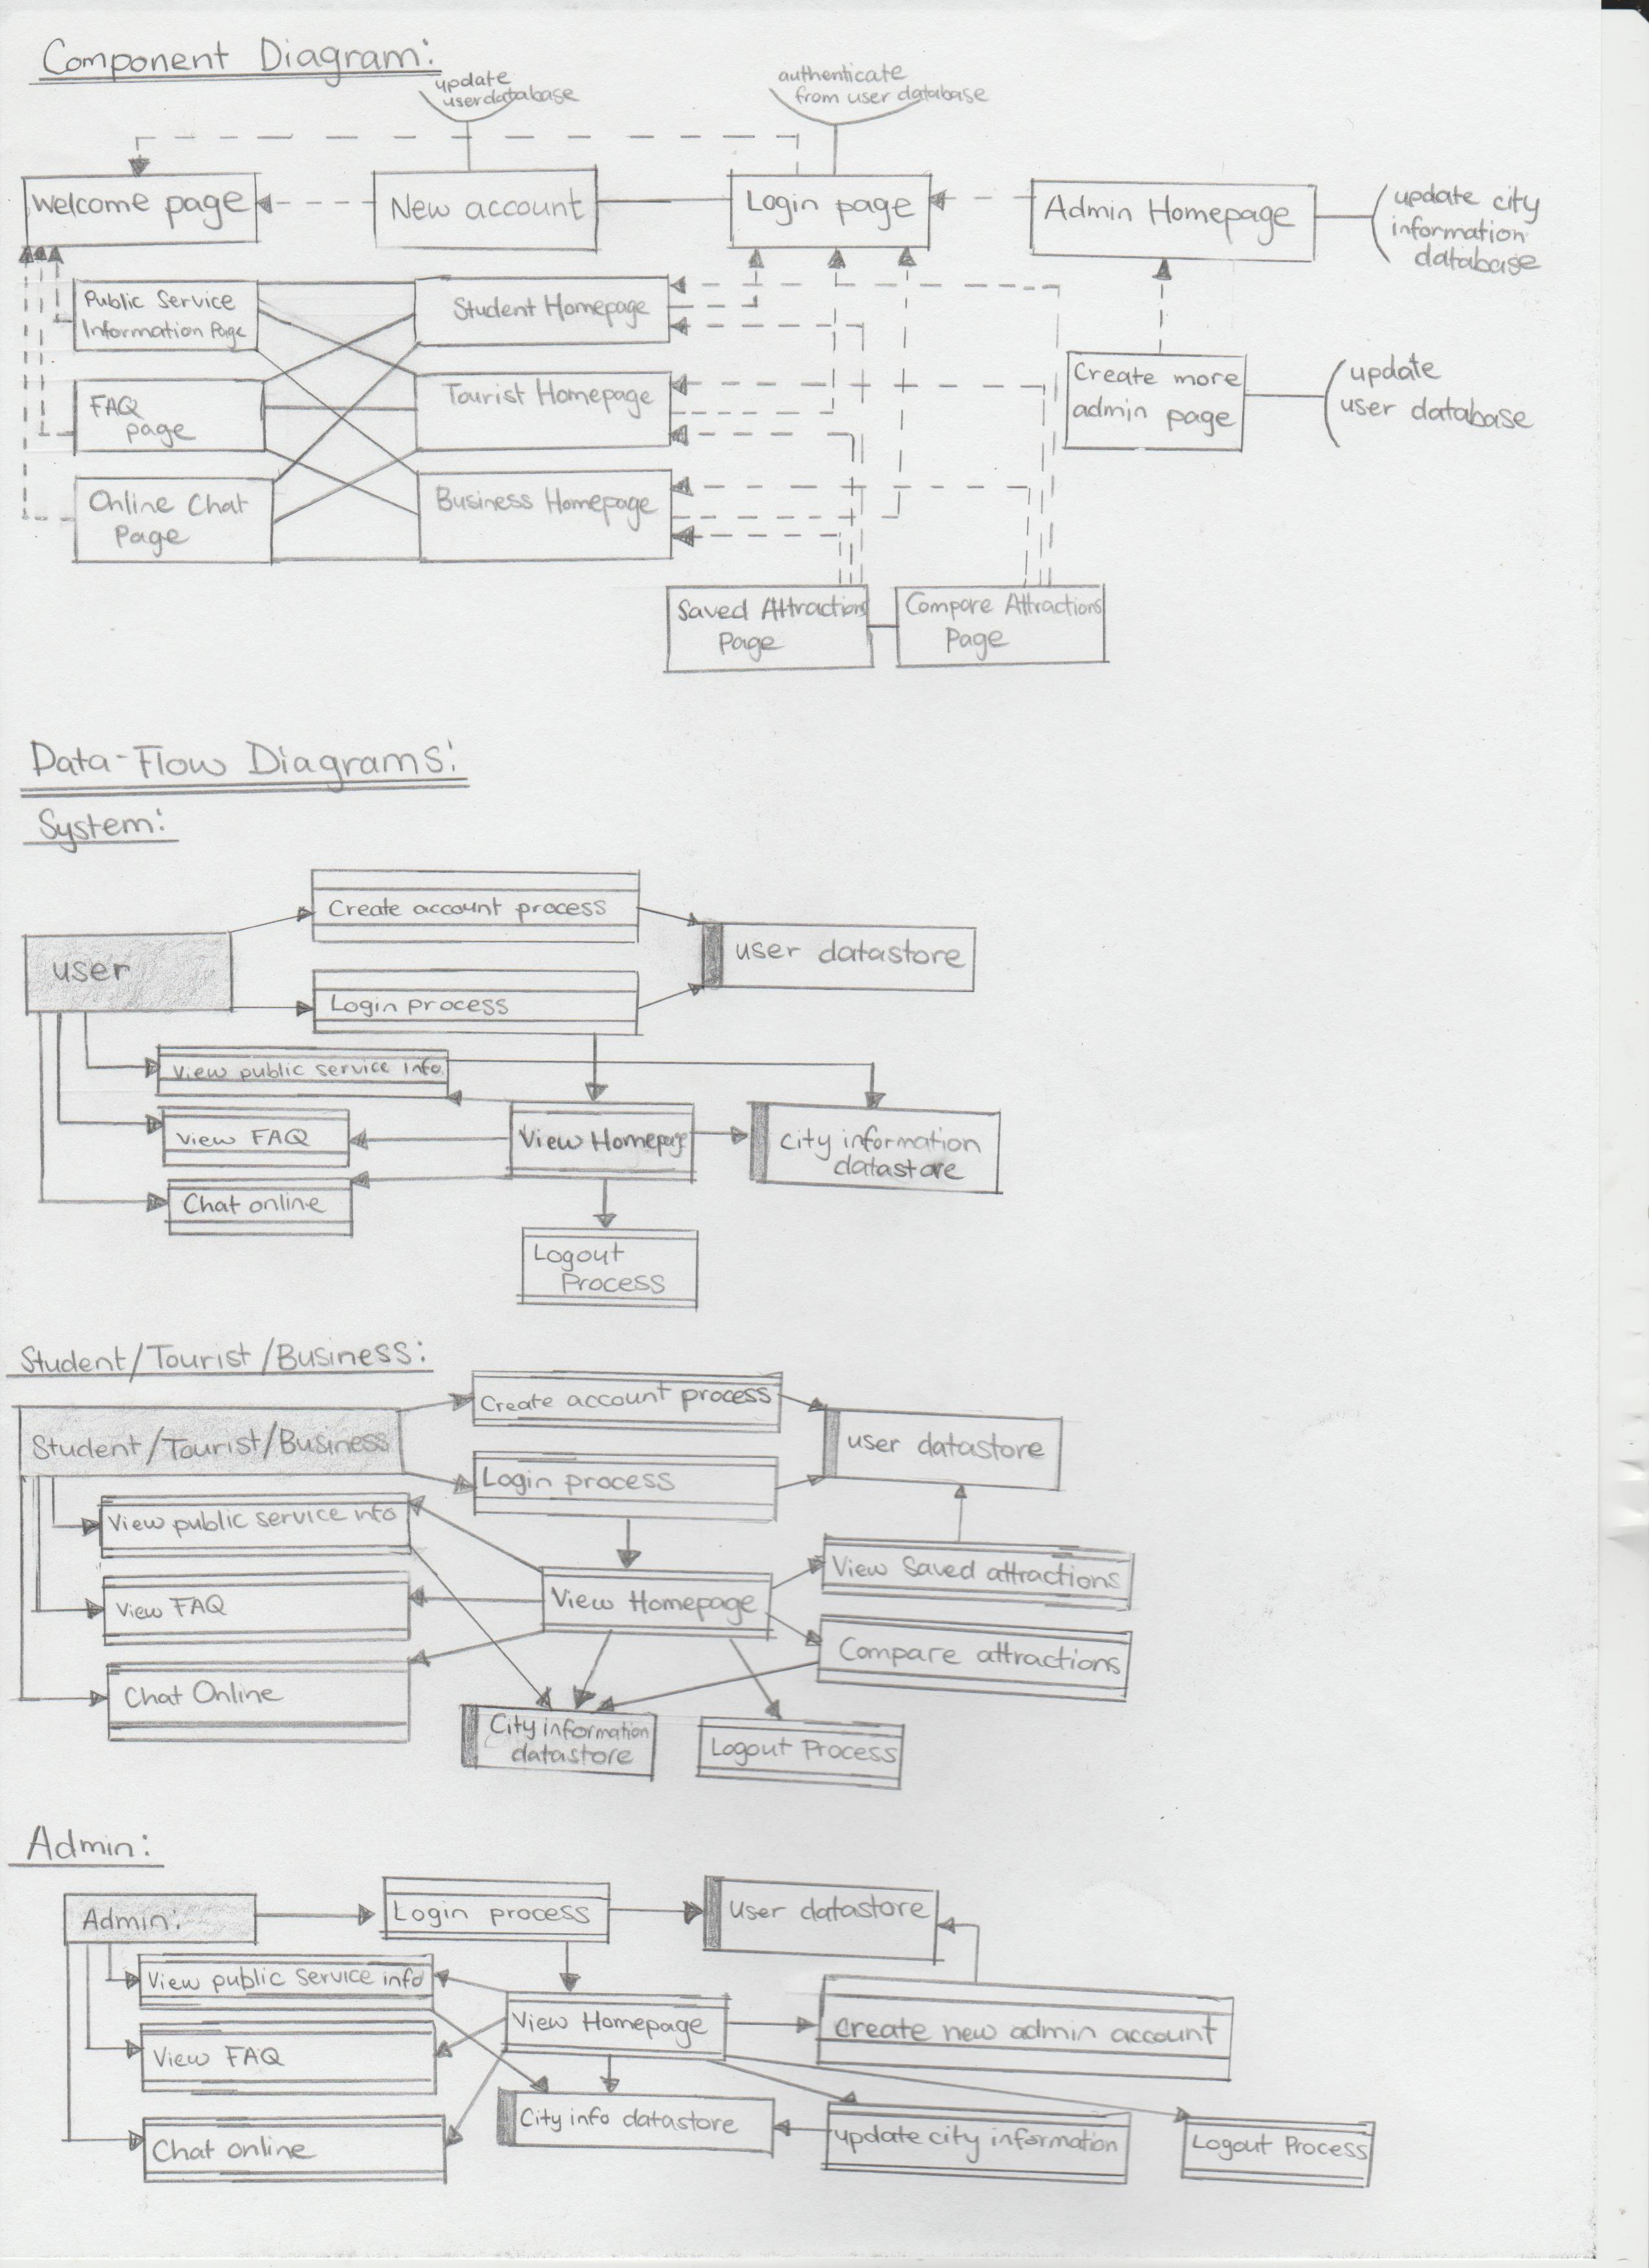 Component Diagram:
update
userdatabase
authenticate
from user database
Welcome page
New account
Login page
Admin Homepage
update city
information
database
Public Service
Information Page
Student Homepage
FAQ
page
Tourist Homepage
Create more
admin page
update
user database
Online Chat
Page
Business Homepage
Saved Attractions
Page
Compare Attractions
Page
Data-Flow Diagrams:
System:
user
Create account process
user datastore
Login process
View public service info
View FAQ
View Homepage
City information
datastore
Chat online
Logout
Process
Student/Tourist/Business:
Student/Tourist/Business
Create account process
user datastore
Login process
View public service info
View FAQ
View Homepage
View Saved attractions
Compare attractions
Chat Online
City information
datastore
Logout Process
Admin:
Admin:
Login process
user datastore
View public service info
View Homepage
create new admin account
View FAQ
City info datastore
update city information
Logout Process
Chat online